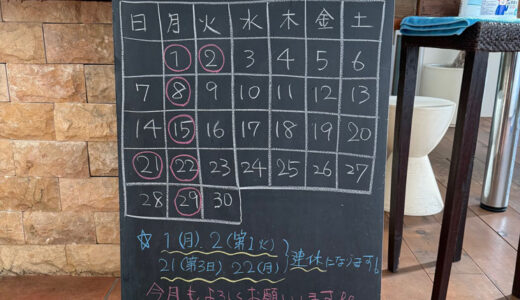 日 月 火 水 木 金 土
1 2 3 4 5 6
7 8 9 10 11 12 13
14 15 16 17 18 19 20
21 22 23 24 25 26 27
28 29 30
☆ 1(月).2(第1火)
21(第3日) 22(月) }連休になります!
今月もよろしくお願いします